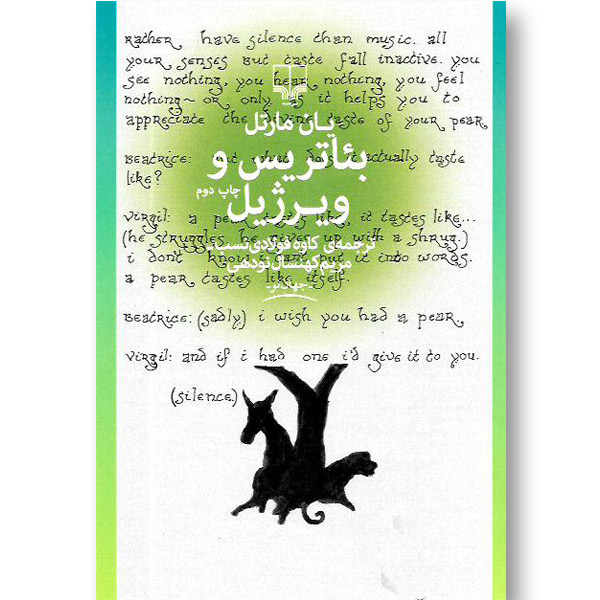 Rather have silence than music. all
your senses but taste fall inactive. you
see nothing, you hear nothing, you feel
nothing~ or only as it helps you to
appreciate the divine taste of your pear.
یان مارتل
بئاتریس و
ویرژیل
چاپ دوم
ترجمه‌ی کاوه فولادی‌نسب
مریم کهنسال نودهی
-جهان‌نو-
Beatrice: but what does it actually taste
like?
Virgil: a pear tastes like, it tastes like...
(he struggles. he gives up with a shrug.)
i don't know. i can't put it into words.
a pear tastes like itself.
Beatrice: (sadly) i wish you had a pear.
Virgil: and if i had one i'd give it to you.
(silence.)